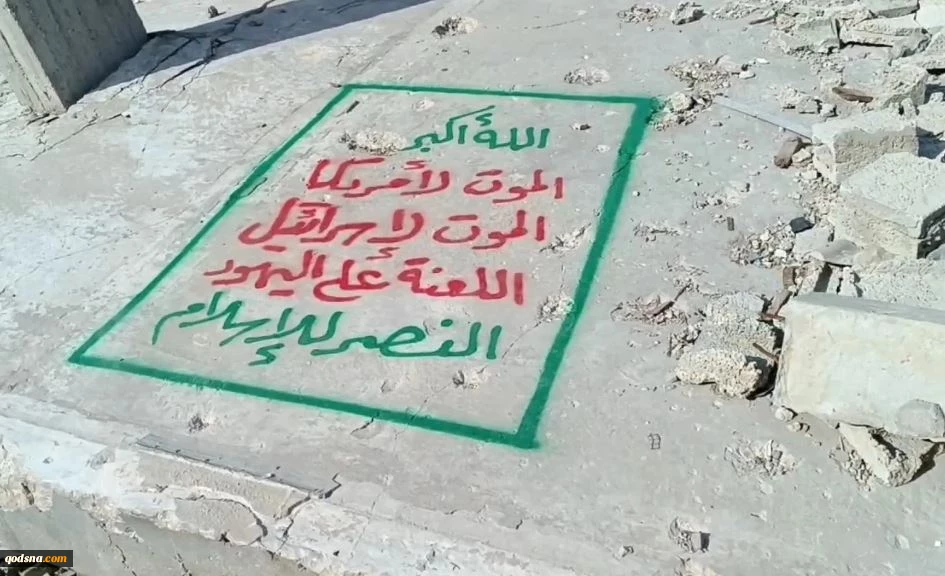 الله أكبر
الموت لأمريكا
الموت لإسرائيل
اللعنة على اليهود
النصر للإسلام
qodsna.com